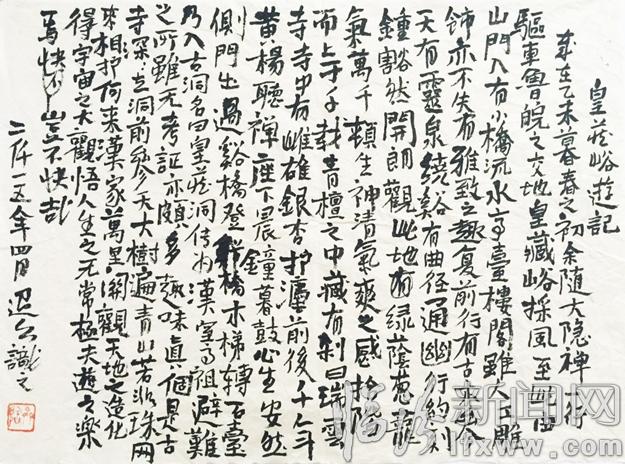 皇藏峪遊記
歲在乙未暮春之初余随大隐禅一行
驅車魯皖之交地皇藏峪採風至
山門入有小橋流水亭臺樓閣雖大工雕
饰亦不失有雅致之趣复前行有古
天有靈泉繞谿有曲径通幽行约刻
鍾豁然開朗觀此地有绿蔭葱蘢
氣萬千頓生神清氣爽之感拾階
而上于千载青檀之中藏有刹曰瑞雲
寺寺中有雌雄銀杏护灋前後千人斗
黄楊聽禅座下晨鐘暮鼓心生安然
側門出過谿橋登橋木梯轉百臺
乃入古洞名曰皇藏洞传为漢室高祖避難
之所雖无考証亦頗多趣味真個是古
寺深去洞前参天大樹遍青山若非珠网
來相护何来漢家萬里洞觀天地之造化
得宇宙之大觀悟人生之无常極天遊之樂
焉快哉豈不快哉
二仟一五年四月 識之
临汾新闻网
lfxww.com